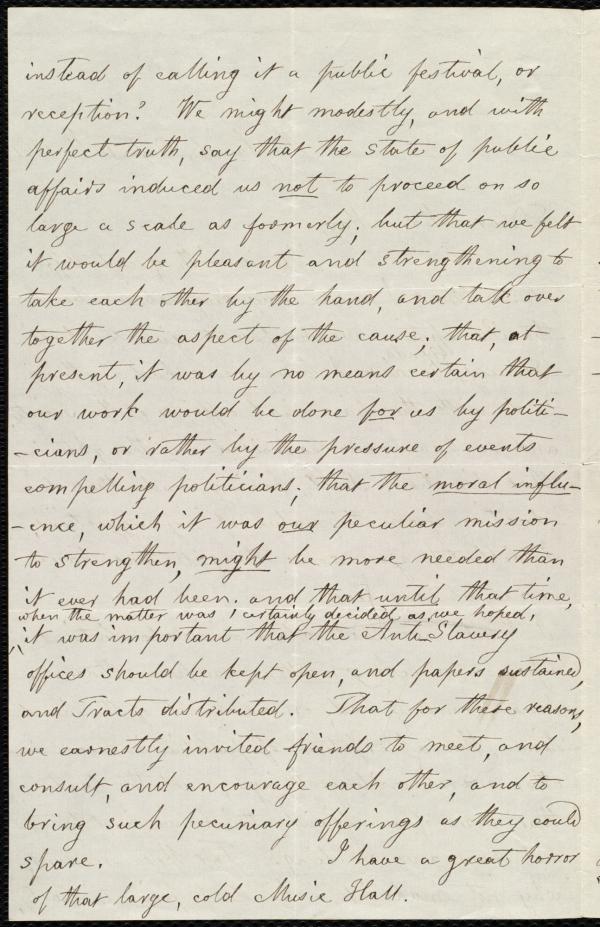 instead of calling it a public festival, or
reception? We might modestly, and with
perfect truth, say that the state of public
affairs induced us not to proceed on so
large a scale as formerly; but that we felt
it would be pleasant and strengthening to
take each other by the hand, and talk over
together the aspect of the cause; that, at
present, it was by no means certain that
our work would be done for us by politi-
-cians, or rather by the pressure of events
compelling politicians; that the moral influ-
-ence, which it was our peculiar mission
to strengthen, might be more needed than
it ever had been. and that until that time,
when the matter was certainly decided, as we hoped,
it was important that the Anti-Slavery
offices should be kept open, and papers sustained,
and Tracts distributed. That for these reasons,
we earnestly invited friends to meet, and
consult, and encourage each other, and to
bring such pecuniary offerings as they could
spare. I have a great horror
of that large, cold Music Hall.